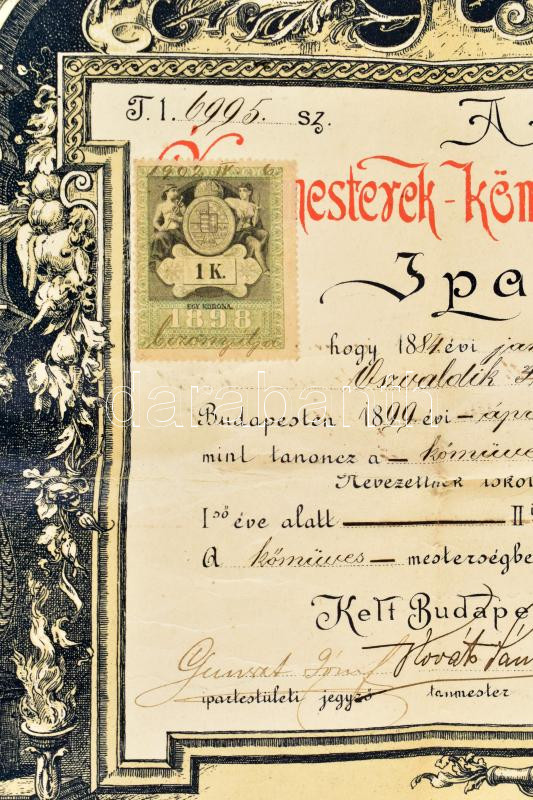 T. 1. 6995. sz.
A
mesterek - kőm
Ipa
1 K.
EGY KORONA.
1898
bizonyitja
hogy 1884. évi jan
Oszvaldik
Budapesten 1899 évi – ápr
mint tanoncz a – kőműve
Nevezettnek iskol
I ső éve alatt II
A kőműves – mesterségbe
Kelt Budape
Kováts Ján
ipartestületi jegyző tanmester
darabanth